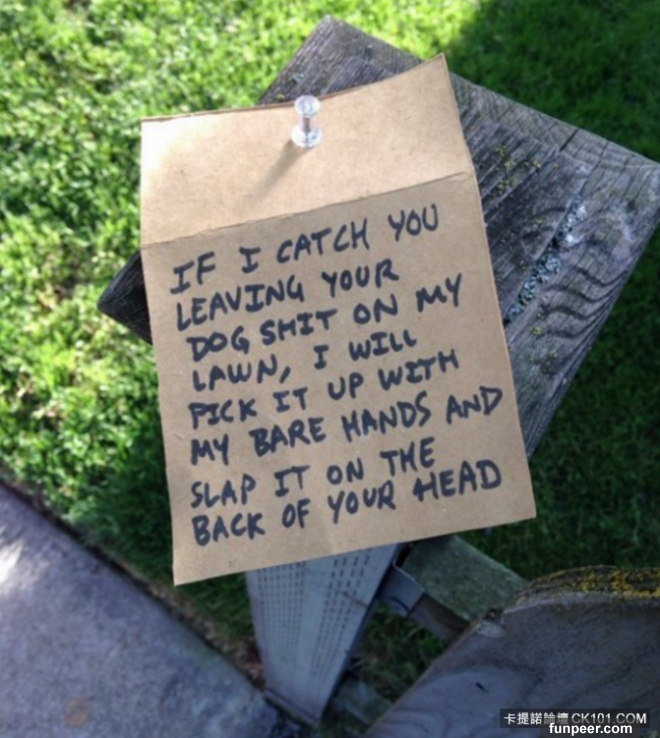 IF I CATCH YOU
LEAVING YOUR
DOG SHIT ON MY
LAWN, I WILL
PICK IT UP WITH
MY BARE HANDS AND
SLAP IT ON THE
BACK OF YOUR HEAD
卡提諾論壇 CK101.COM
funpeer.com